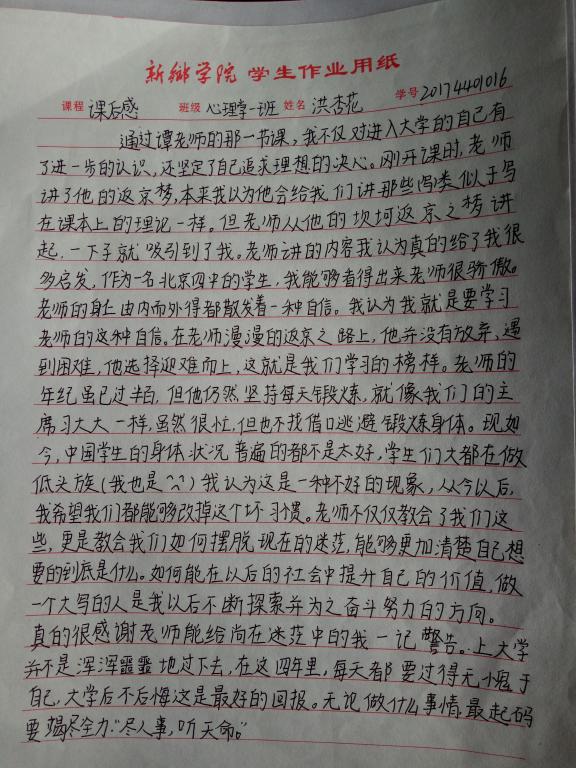 新乡学院 学生作业用纸
课程 课后感 班级 心理学一班 姓名 洪杏花 学号 20174401016
通过谭老师的那一节课,我不仅对进入大学的自己有
了进一步的认识,还坚定了自己追求理想的决心。刚开课时,老师
讲了他的返京梦,本来我以为他会给我们讲那些类似于写
在课本上的理论一样。但老师从他的坎坷返京之梦讲
起,一下子就吸引到了我。老师讲的内容我认为真的给了我很
多启发,作为一名北京四中的学生,我能够看得出来老师很骄傲。
老师的身上由内而外得都散发着一种自信。我认为我就是要学习
老师的这种自信。在老师漫漫的返京之路上,他并没有放弃、遇
到困难,他选择迎难而上,这就是我们学习的榜样。老师的
年纪虽已过半百,但他仍然坚持每天锻炼,就像我们的主
席习大大一样,虽然很忙,但也不找借口逃避锻炼身体。现如
今,中国学生的身体状况普遍的都不是太好,学生们大都在做
低头族(我也是^~^)我认为这是一种不好的现象,从今以后,
我希望我们都能够改掉这个坏习惯。老师不仅仅教会了我们这
些,更是教会我们如何摆脱现在的迷茫,能够更加清楚自己想
要的到底是什么。如何能在以后的社会中提升自己的价值,做
一个大写的人是我以后不断探索并为之奋斗努力的方向。
真的很感谢老师能给尚在迷茫中的我一记警告。上大学
并不是浑浑噩噩地过下去,在这四年里,每天都要过得无愧于
自己,大学后不后悔这是最好的回报。无论做什么事情,最起码
要竭尽全力."尽人事,听天命。"